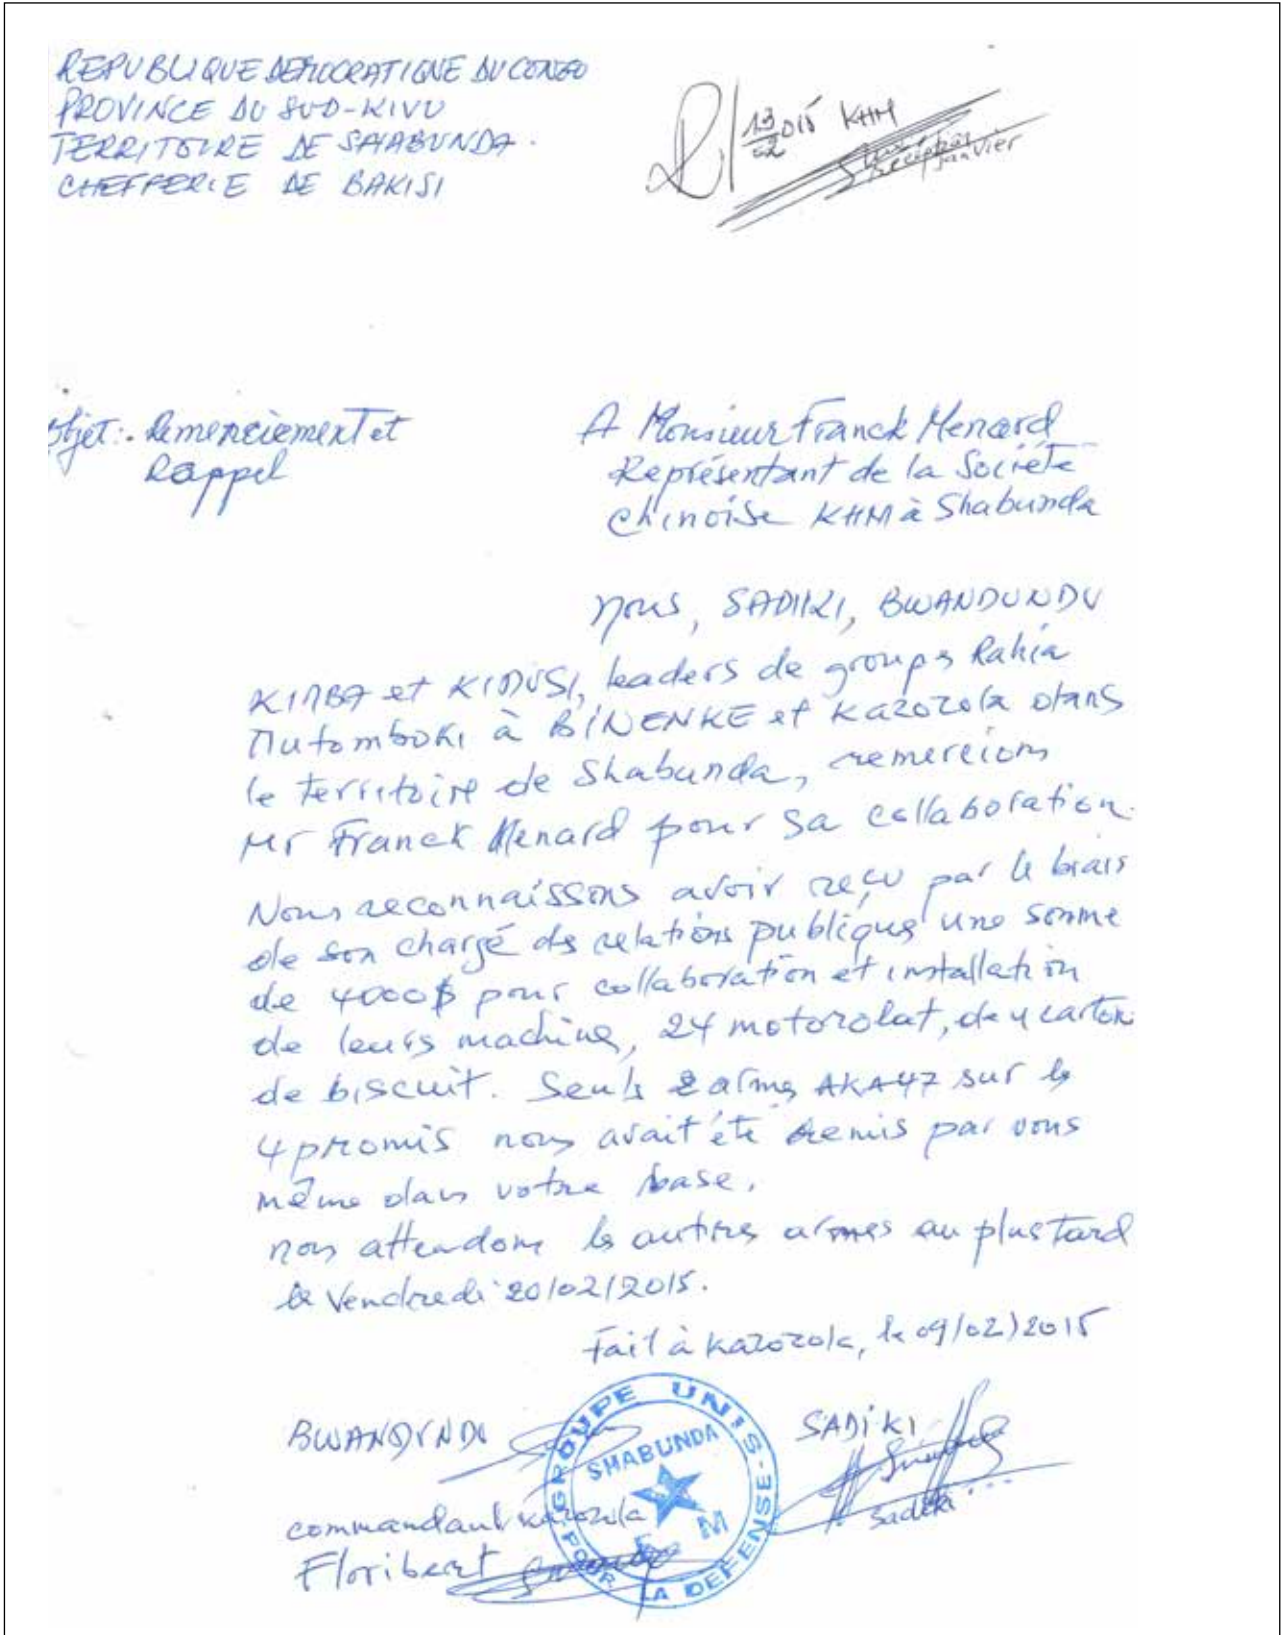 REPUBLIQUE DEMOCRATIQUE DU CONGO
PROVINCE DU SUD-KIVU
TERRITOIRE DE SHABUNDA.
CHEFFERIE DE BAKISI
13/02 015 KHM
janvier
Objet:. Remerciement et
Rappel
A Monsieur Franck Menard
Représentant de la Société
Chinoise KHM à Shabunda
Nous, SADIKI, BWANDUNDU
KIMBA et KIDUSI, leaders de groupes Rahia
Mutomboki à BINENKE et Kazozola dans
le territoire de Shabunda, remercions
Mr Franck Menard pour sa collaboration.
Nous reconnaissons avoir reçu par le biais
de son chargé des relations publiques une somme
de 4000$ pour collaboration et installation
de leurs machines, 24 motorolat, de 4 carton
de biscuit. Seuls 2 armes AKA47 sur les
4 promis nous avait été remis par vous
même dans votre base.
nous attendons les autres armes au plus tard
le Vendredi 20/02/2015.
Fait à Kazozola, le 09/02/2015
BWANDUNDU
SADIKI
Sadiki
commandant Kazozola
Floribert
GROUPE UNIS-POUR LA DEFENSE-
SHABUNDA
M